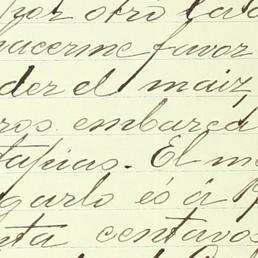 por otro lado
hacerme favor
der el maiz,
ros embarca
tapias. El m
garlo és á
nta centavos